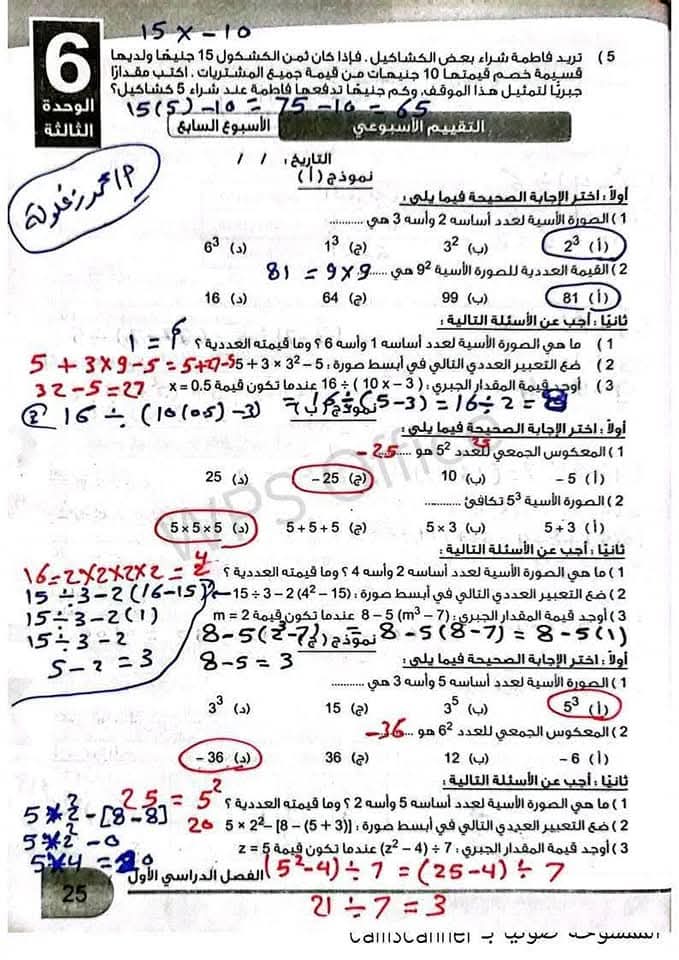 15 x - 10
6
الوحدة
الثالثة
5 ) تريد فاطمة شراء بعض الكشاكيل . فإذا كان ثمن الكشكول 15 جنيهًا ولديها
قسيمة خصم قيمتها 10 جنيهات من قيمة جميع المشتريات . اكتب مقدارًا
جبريًا لتمثيل هذا الموقف، وكم جنيهًا تدفعها فاطمة عند شراء 5 كشاكيل؟
15(5) - 10 = 75 - 10 = 65
التقييم الأسبوعي الأسبوع السابع
التاريخ : / /
نموذج ( أ )
أ/ محمد زغلولة
أولاً : اختر الإجابة الصحيحة فيما يلي :
1 ) الصورة الأسية لعدد أساسه 2 وأسه 3 هي ...........
( أ ) 2³ (ب) 3² (ج) 1³ (د) 6³
2 ) القيمة العددية للصورة الأسية 9² هي ...... 81 = 9×9
( أ ) 81 (ب) 99 (ج) 64 (د) 16
ثانيًا : أجب عن الأسئلة التالية :
1 ) ما هي الصورة الأسية لعدد أساسه 1 وأسه 6 ؟ وما قيمته العددية ؟ 1 = 1⁶
2 ) ضع التعبير العددي التالي في أبسط صورة : 5 + 3 × 3² – 5 5 + 3×9 - 5 = 5+27-5
3 ) أوجد قيمة المقدار الجبري : ( 10 x – 3 ) ÷ 16 عندما تكون قيمة x = 0.5 32 - 5 = 27
16 ÷ (10(0.5) - 3) = 16 ÷ (5-3) = 16 ÷ 2 = 8
نموذج ( ب )
أولاً : اختر الإجابة الصحيحة فيما يلي :
1 ) المعكوس الجمعي للعدد 5² هو ...... 25 -25
( أ ) – 5 (ب) 10 (ج) – 25 (د) 25
2 ) الصورة الأسية 5³ تكافئ ..........
( أ ) 5 + 3 (ب) 5 × 3 (ج) 5 + 5 + 5 (د) 5 × 5 × 5
ثانيًا : أجب عن الأسئلة التالية :
1 ) ما هي الصورة الأسية لعدد أساسه 2 وأسه 4 ؟ وما قيمته العددية ؟ 16 = 2×2×2×2 = 2⁴
2 ) ضع التعبير العددي التالي في أبسط صورة : 15 ÷ 3 – 2 (4² – 15) 15 ÷ 3 - 2 (16 - 15)
3 ) أوجد قيمة المقدار الجبري : 8 – 5 (m³ – 7) عندما تكون قيمة m = 2 15 ÷ 3 - 2(1)
8 - 5(2³-7) = 8 - 5(8-7) = 8 - 5(1)
15 ÷ 3 - 2
نموذج ( ج )
5 - 2 = 3 8 - 5 = 3
أولاً : اختر الإجابة الصحيحة فيما يلي :
1 ) الصورة الأسية لعدد أساسه 5 وأسه 3 هي ...........
( أ ) 5³ (ب) 3⁵ (ج) 15 (د) 3³
2 ) المعكوس الجمعي للعدد 6² هو ...... -36
( أ ) – 6 (ب) 12 (ج) 36 (د) – 36
ثانيًا : أجب عن الأسئلة التالية :
1 ) ما هي الصورة الأسية لعدد أساسه 5 وأسه 2 ؟ وما قيمته العددية ؟ 25 = 5²
2 ) ضع التعبير العددي التالي في أبسط صورة : 5 × 2² – [8 – (5 + 3)] 20
5 × 2² - [8 - 8]
5 × 2² - 0
5 × 4 = 20
3 ) أوجد قيمة المقدار الجبري : (z² – 4) ÷ 7 عندما تكون قيمة z = 5
(5²-4) ÷ 7 = (25-4) ÷ 7
21 ÷ 7 = 3
الفصل الدراسي الأول
25
WPS Office
الممسوحة ضوئيا بـ CamScanner